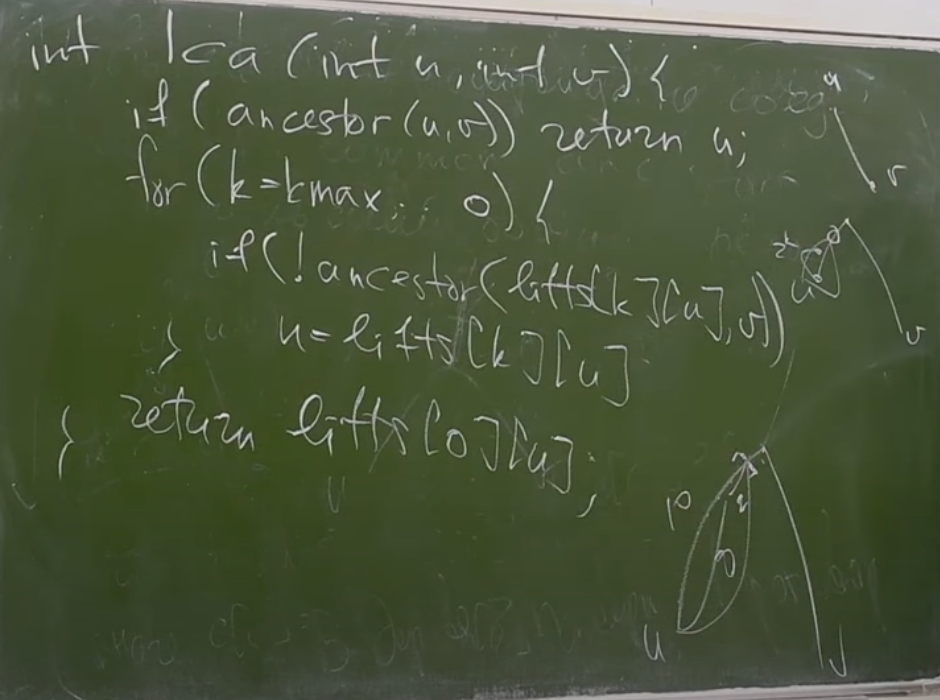 int lca (int u, int v) {
if (ancestor (u,v)) return u;
for (k=kmax .. 0) {
if (! ancestor (lifts[k][u], v))
u = lifts [k][u]
}
return lifts [0][u];
}
u
v
2^k
u
v
u
v